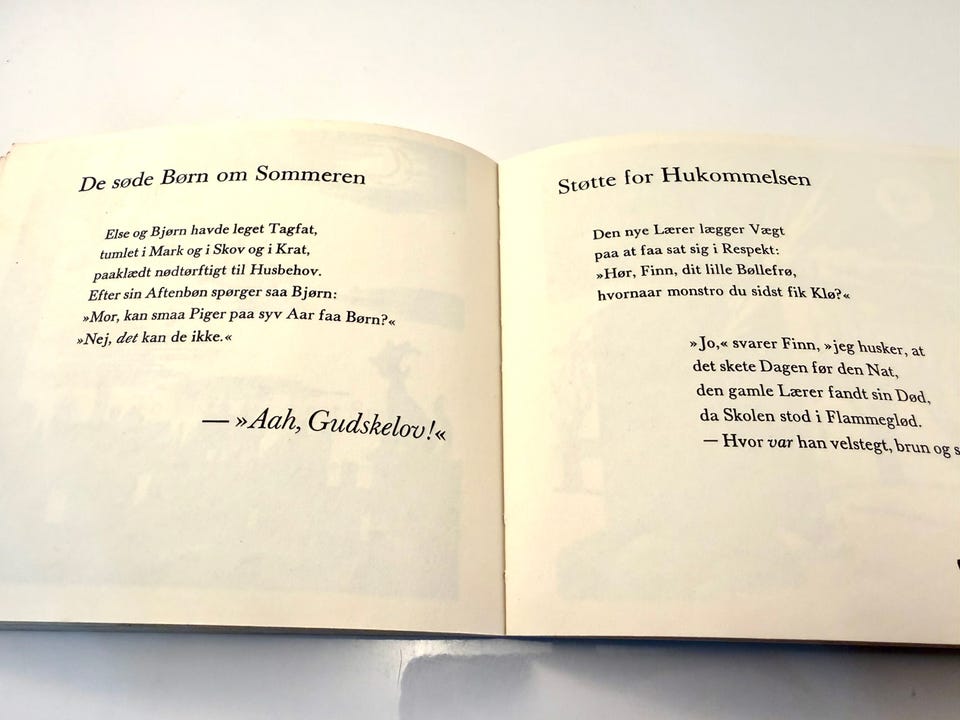 De søde Børn om Sommeren
Else og Bjørn havde leget Tagfat,
tumlet i Mark og i Skov og i Krat,
paaklædt nødtørftigt til Husbehov.
Efter sin Aftenbøn spørger saa Bjørn:
»Mor, kan smaa Piger paa syv Aar faa Børn?«
»Nej, det kan de ikke.«
— »Aah, Gudskelov!«
Støtte for Hukommelsen
Den nye Lærer lægger Vægt
paa at faa sat sig i Respekt:
»Hør, Finn, dit lille Bøllefrø,
hvornaar monstro du sidst fik Klø?«
»Jo,« svarer Finn, »jeg husker, at
det skete Dagen før den Nat,
den gamle Lærer fandt sin Død,
da Skolen stod i Flammeglød.
— Hvor var han velstegt, brun og